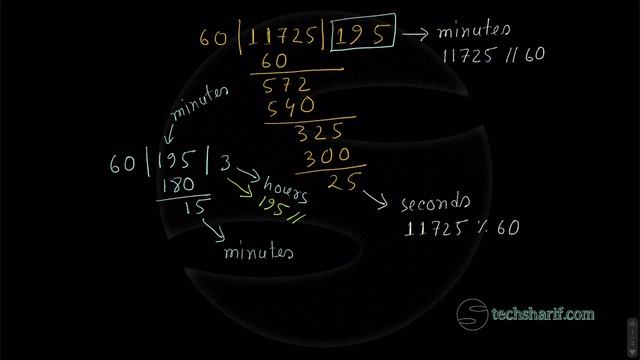 60 | 11725 | 195 → minutes
11725 // 60
60
572
540
325
300
25
seconds
11725 % 60
minutes
60 | 195 | 3
180
15
hours
195 //
minutes
techsharif.com